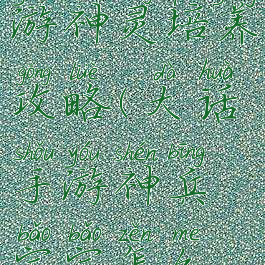 游神灵培养
gōng lüè dà huà
攻略(大话
shǒu yóu shén bīng
手游神兵
bǎo bǎo zěn me